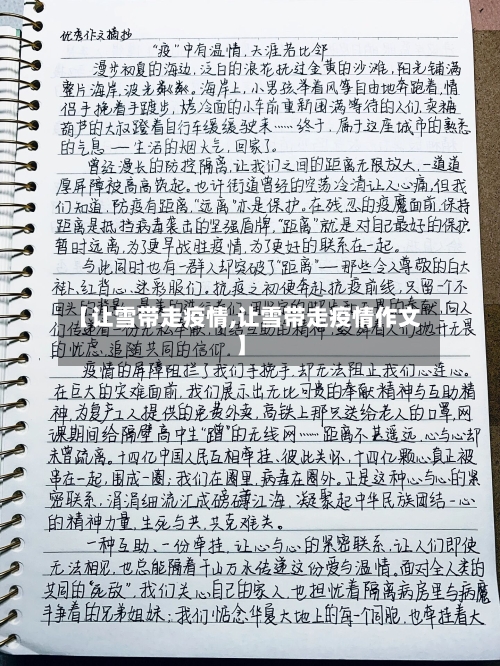 优秀作文摘抄
“疫”中有温情,天涯若比邻
漫步初夏的海边,泛白的浪花抚过金黄的沙滩,阳光铺满
整片海岸,波光粼粼。海岸上,小男孩举着风筝自由地奔跑着,情
侣手挽着手踱步,烤冷面的小车前重新围满等待的人们,卖糖
葫芦的大叔蹬着自行车缓缓驶来……终于,属于这座城市的熟悉
的气息——生活的烟火气,回家了。
曾经漫长的防控隔离,让我们之间的距离无限放大,一道道
厚屏障被高高筑起。也许街道曾经的空荡冷清让人心痛,但我
们知道,防疫有距离,“远离”亦是保护。在残忍的疫魔面前,保持
距离是抵挡病毒袭击的坚强盾牌,“距离”就是对自己最好的保护。
暂时远离,为了更早战胜疫情,为了更好的联系在一起。
与此同时也有一群人却突破了“距离”——那些令人尊敬的白大
褂、红背心、迷彩服们。抗疫之初便奔赴抗疫前线,只留个不
【让雪带走疫情,让雪带走疫情作文
】
的忧虑,追随共同的信仰。
疫情的屏障阻拦了我们手挽手,却无法阻止我们心连心。
在巨大的灾难面前,我们展示出无比可贵的奉献精神与互助精
神,为复产工人提供的免费外卖,高铁上那只送给老人的口罩,网
课期间给隔壁高中生“蹭”的无线网……距离不甚遥远,心与心却
未曾疏离。十四亿中国人民互相牵挂、彼此关怀,十四亿颗心真正被
串在一起,围成一圈;我们在圈里,病毒在圈外。正是这种心与心的紧
密联系,涓涓细流汇成磅礴江海,凝聚起中华民族团结一心
的精神力量,生死与共,共克难关。
一种互助、一份牵挂,让心与心的紧密联系,让人们即使
无法相见,也总能隔着千山万水传递这份爱与温情。面对全人类的
共同的“死敌”,我们关心自己的家人,也担忧着隔离病房里与病魔
斗争着的兄弟姐妹;我们惦念华夏大地上的每一个同胞,也牵挂着大